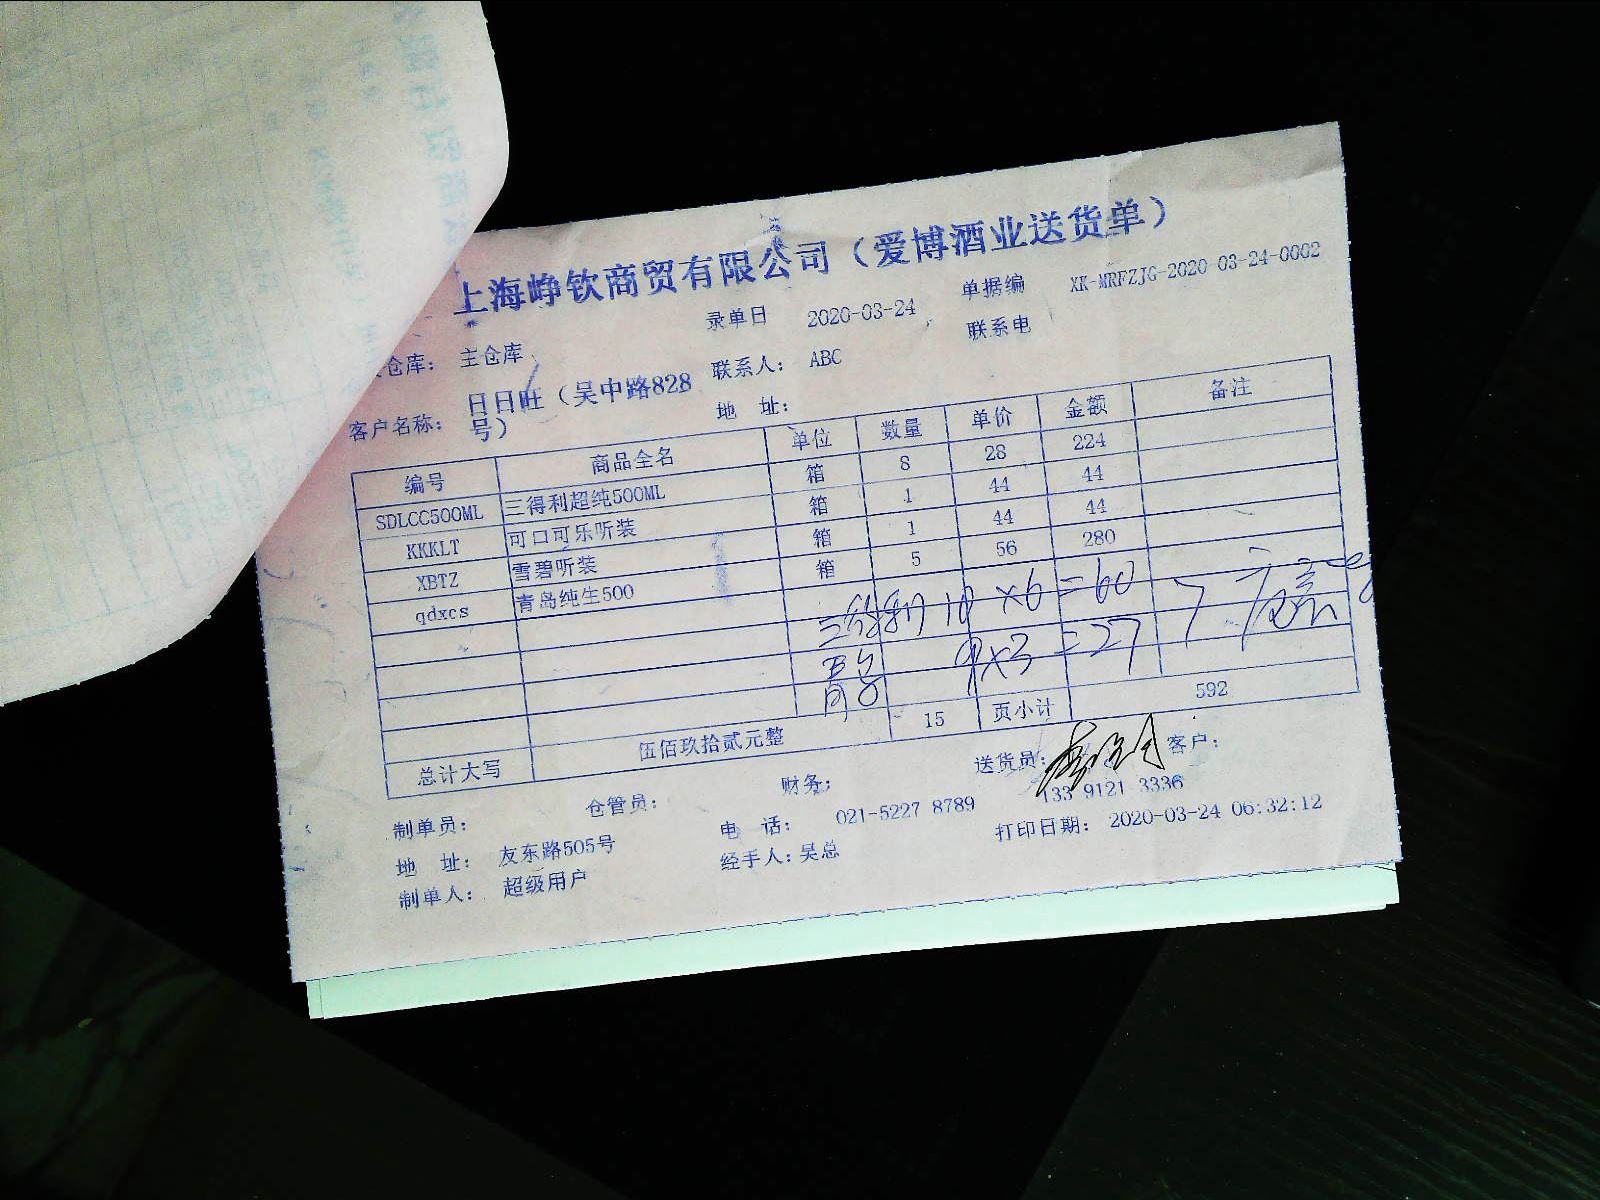 上海峥钦商贸有限公司（爱博酒业送货单）
仓库： 主仓库 录单日 2020-03-24 单据编 XK-MRFZJG-2020-03-24-0002
客户名称： 日日旺（吴中路828号） 联系人： ABC 联系电
地 址：
编号 商品全名 单位 数量 单价 金额 备注
SDLCC500ML 三得利超纯500ML 箱 8 28 224
KKKLT 可口可乐听装 箱 1 44 44
XBTZ 雪碧听装 箱 1 44 44
qdxcs 青岛纯生500 箱 5 56 280
三得利 10 ×6=60
青岛 9×3=27
总计大写 伍佰玖拾贰元整 15 页小计 592
制单员： 仓管员： 财务： 送货员： 客户：
地 址： 友东路505号 电 话： 021-5227 8789 133 9121 3336
制单人： 超级用户 经手人：吴总 打印日期： 2020-03-24 06:32:12